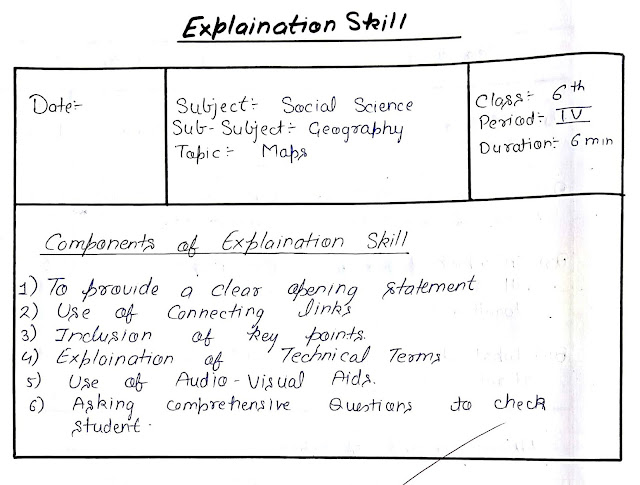 Explaination Skill
Date:-
Subject:- Social Science
Sub-Subject:- Geography
Topic:- Maps
Class:- 6th
Period:- IV
Duration:- 6 min
Components of Explaination Skill
1) To provide a clear opening statement
2) Use of Connecting links
3) Inclusion of key points.
4) Exploination of Technical Terms
5) Use of Audio-Visual Aids.
6) Asking comprehensive Questions to check
student.